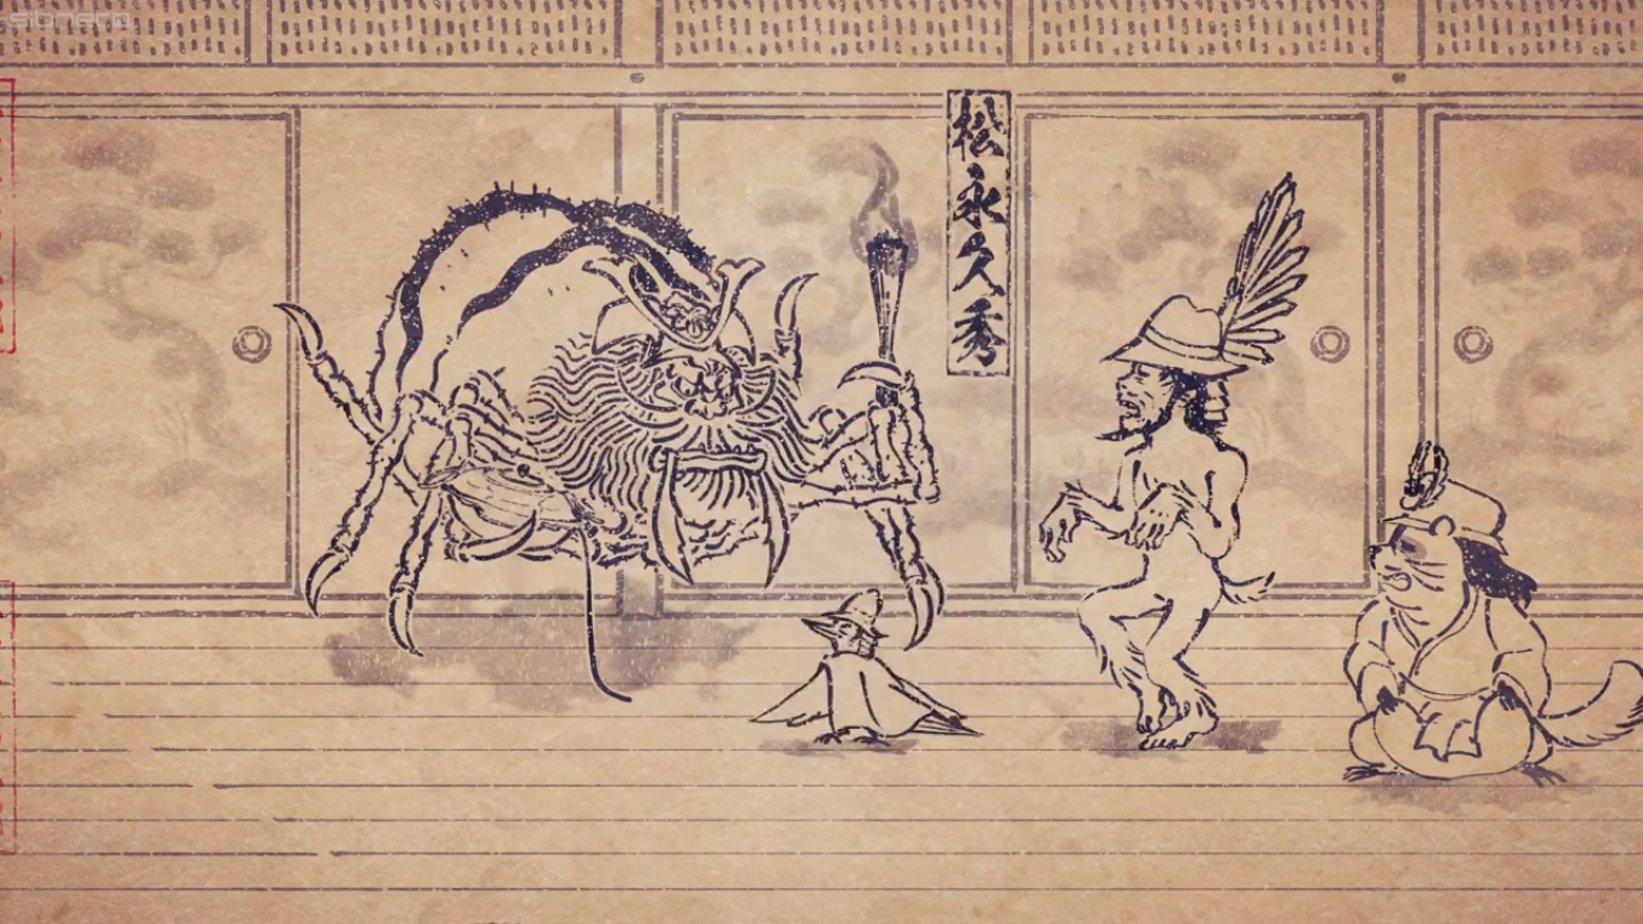 sibnet
松永久秀